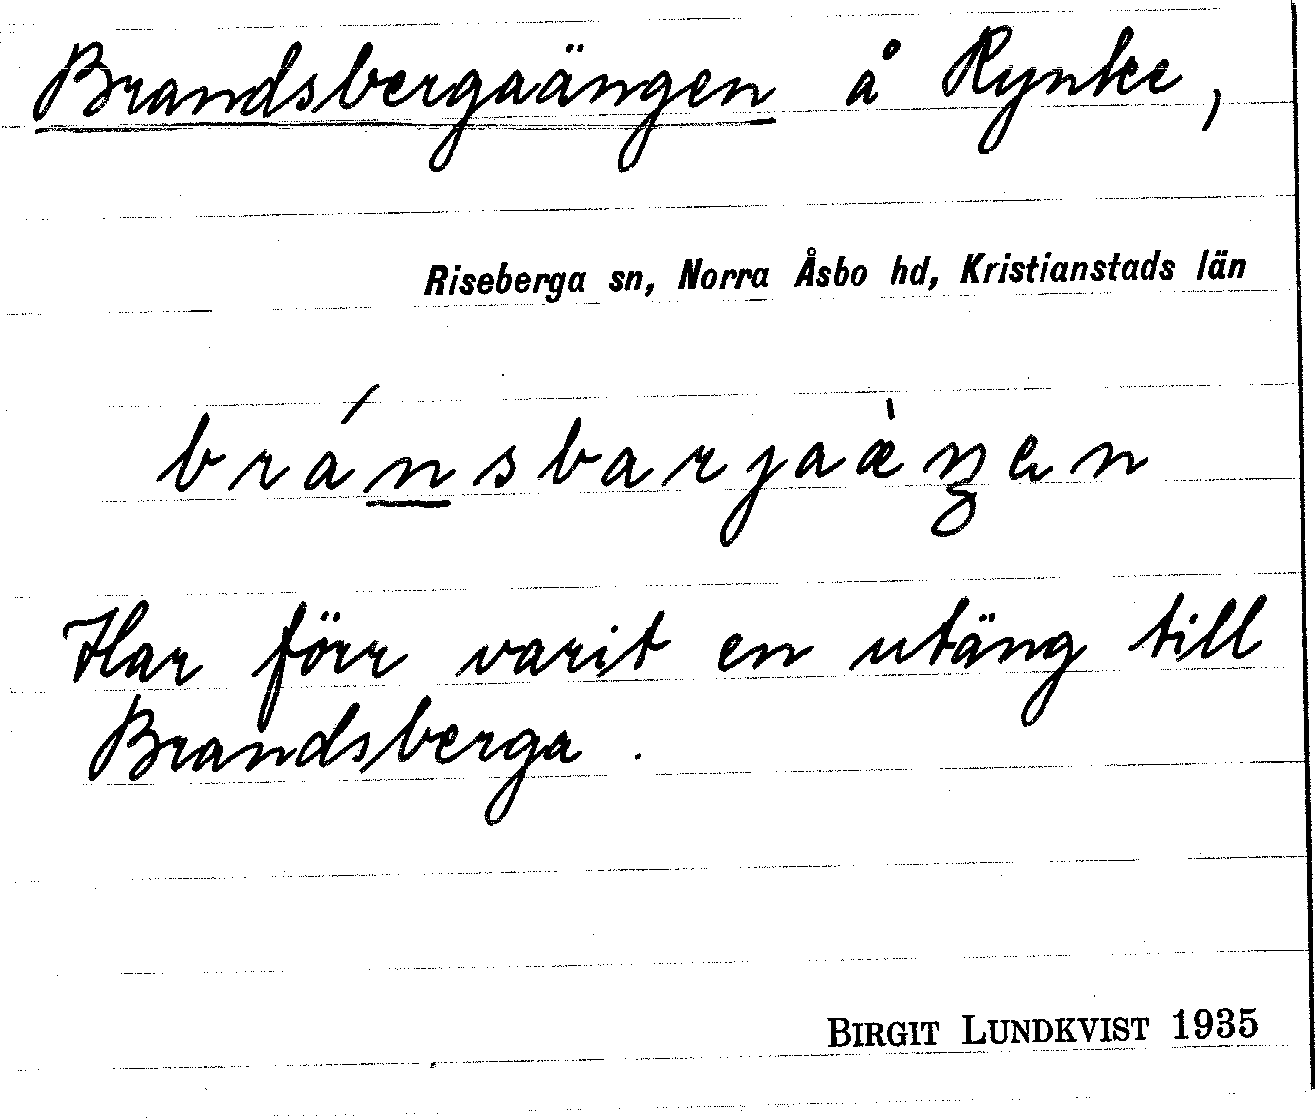 Brandsbergaängen å Rynke,
Riseberga sn, Norra Åsbo hd, Kristianstads län
bránsbarjaæ̀ŋen
Har förr varit en utäng till
Brandsberga.
BIRGIT LUNDKVIST 1935